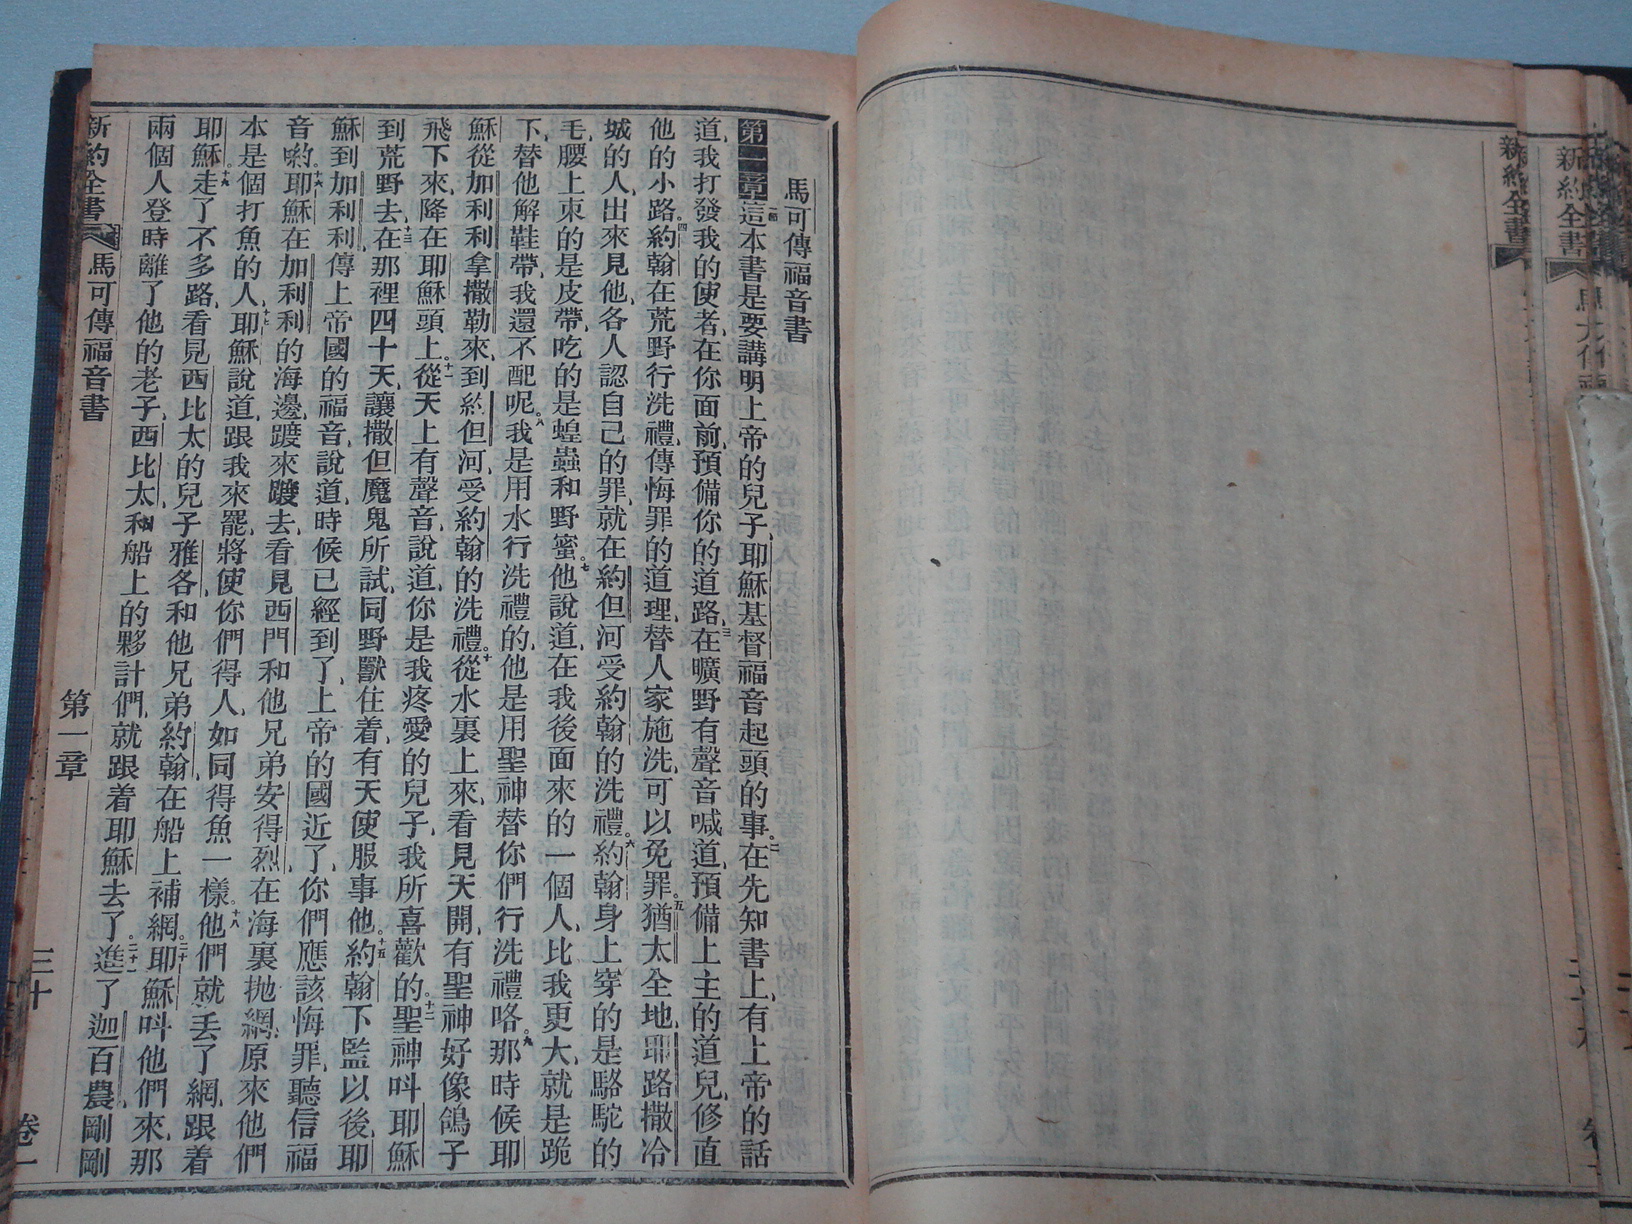 新約全書
馬可傳福音書
第一章這本書是要講明上帝的兒子、耶穌基督福音起頭的事。二在先知書上、有上帝的話
道、我打發我的使者、在你面前、預備你的道路、三在曠野有聲音喊道、預備上主的道兒、修直
他的小路。四約翰在荒野行洗禮、傳悔罪的道理、替人家施洗、可以免罪。五猶太全地、耶路撒冷
城的人、出來見他、各人認自己的罪、就在約但河受約翰的洗禮。六約翰身上穿的是駱駝的
毛、腰上束的是皮帶、吃的是蝗蟲和野蜜。七他說道、在我後面來的一個人、比我更大、就是跪
下、替他解鞋帶、我還不配呢。八我是用水行洗禮的、他是用聖神替你們行洗禮咯。九那時候耶
穌從加利利拿撒勒來、到約但河、受約翰的洗禮。十從水裏上來、看見天開、有聖神好像鴿子
飛下來、降在耶穌頭上。十一從天上有聲音、說道、你是我疼愛的兒子、我所喜歡的。十二聖神呌耶穌
到荒野去、十三在那裡四十天、讓撒但魔鬼所試、同野獸住着、有天使服事他。十四約翰下監以後、耶
穌到加利利、傳上帝國的福音、說道、時候已經到了、上帝的國近了、你們應該悔罪、聽信福
音喲。十六耶穌在加利利的海邊、踱來踱去、看見西門和他兄弟安得烈、在海裏拋網、原來他們
本是個打魚的人、十七耶穌說道、跟我來罷、將使你們得人、如同得魚一樣。十八他們就丢了網、跟着
耶穌。十九走了不多路、看見西比太的兒子雅各、和他兄弟約翰、在船上補網。二十耶穌呌他們來、那
兩個人登時離了他的老子、西比太、和船上的夥計們、就跟着耶穌去了。二十一進了迦百農、剛剛
新約全書 馬可傳福音書 第一章 三十 卷一